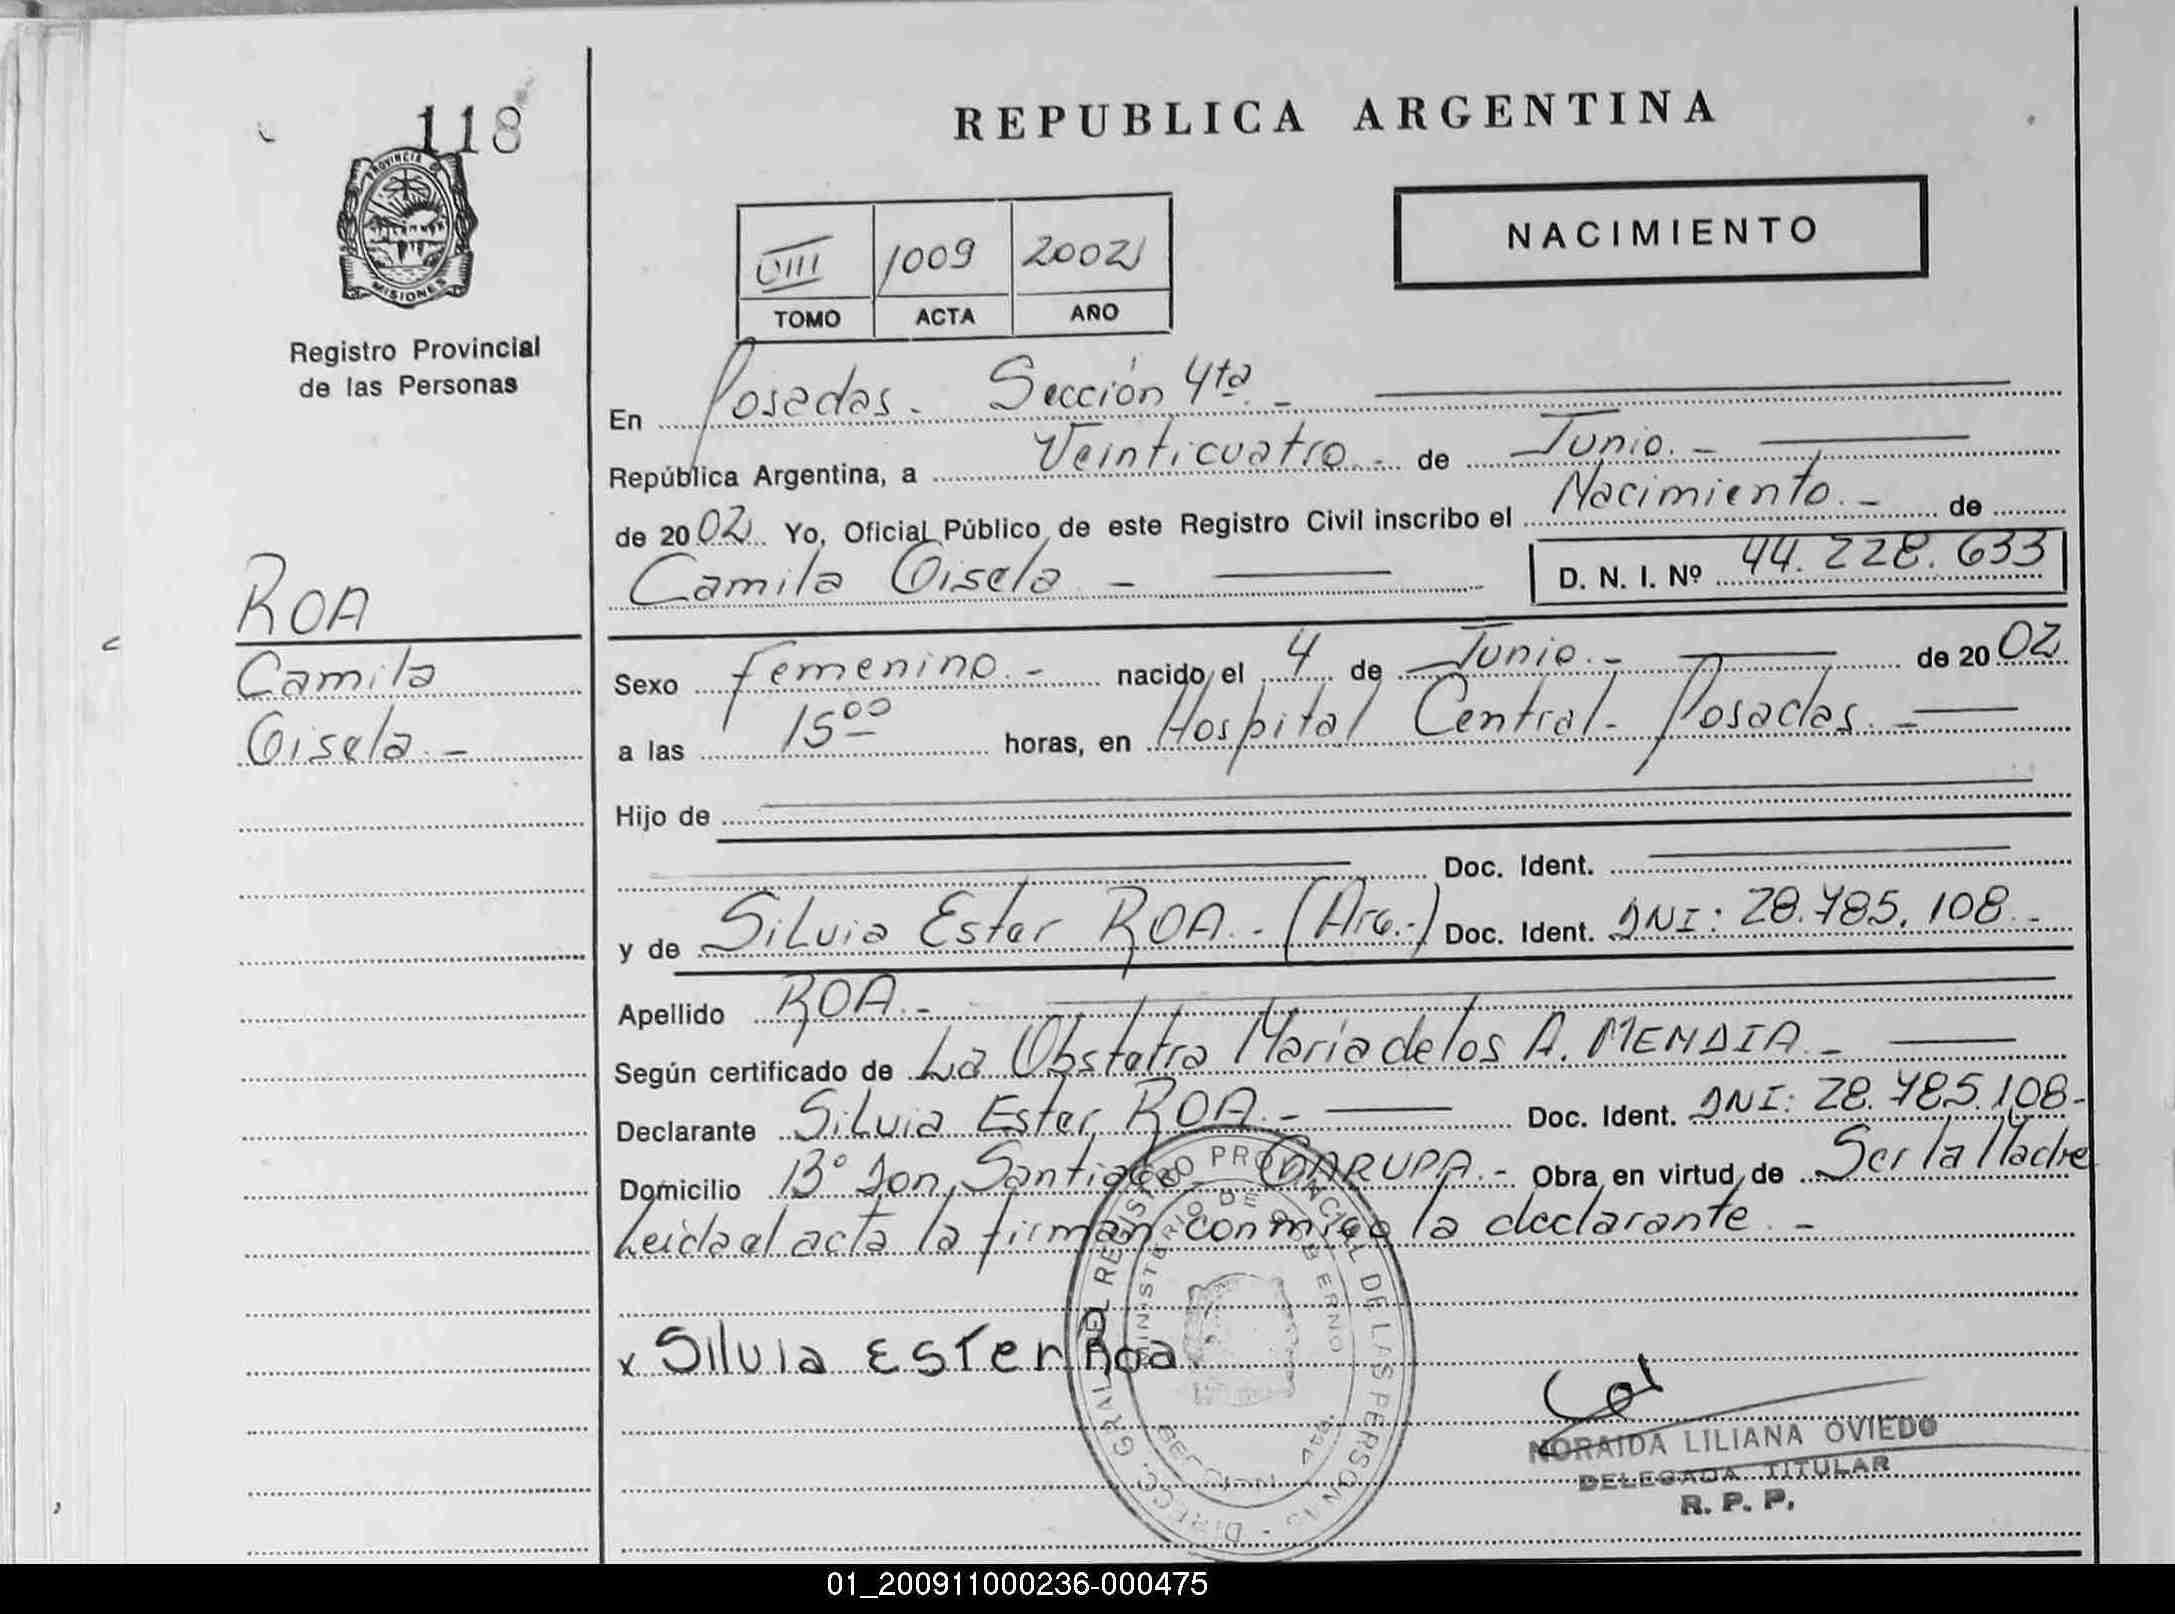 118
REPUBLICA ARGENTINA
PROVINCIA DE
MISIONES
Registro Provincial
de las Personas
VIII 1009 2002
TOMO ACTA AÑO
NACIMIENTO
En Posadas - Sección 4ta. -
República Argentina, a Veinticuatro - de Junio. -
de 2002 Yo, Oficial Público de este Registro Civil inscribo el Nacimiento. - de
Camila Gisela - D. N. I. Nº 44.228.633
ROA
Camila
Gisela. -
Sexo femenino. - nacido el 4 de Junio. - de 2002
a las 15 00 horas, en Hospital Central - Posadas. -
Hijo de
Doc. Ident.
y de Silvia Ester ROA. - (Arg.-) Doc. Ident. DNI: 28.785.108. -
Apellido ROA. -
Según certificado de La Obstetra María de los A. MENDIA. -
Declarante Silvia Ester ROA. - Doc. Ident. DNI: 28.785.108-
Domicilio Bº Don Santiago - GARUPA. - Obra en virtud de Ser la Madre
Leida el acta la firman conmigo la declarante. -
x Silvia Ester Roa
DIRECC. GRAL. DEL REGISTRO PROVINCIAL DE LAS PERSONAS -
MINISTERIO DE GOBIERNO
SECCION 4ta.
NORAIDA LILIANA OVIEDO
DELEGADA TITULAR
R. P. P.
01_200911000236-000475